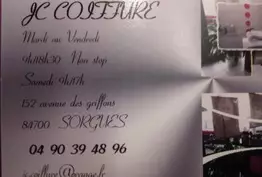 JC COIFFURE
Mardi au Vendredi
9h/18h30 Non stop
Samedi 9h/17h
152 avenue des griffons
84700 SORGUES
04 90 39 48 96
coiffure@orange.fr